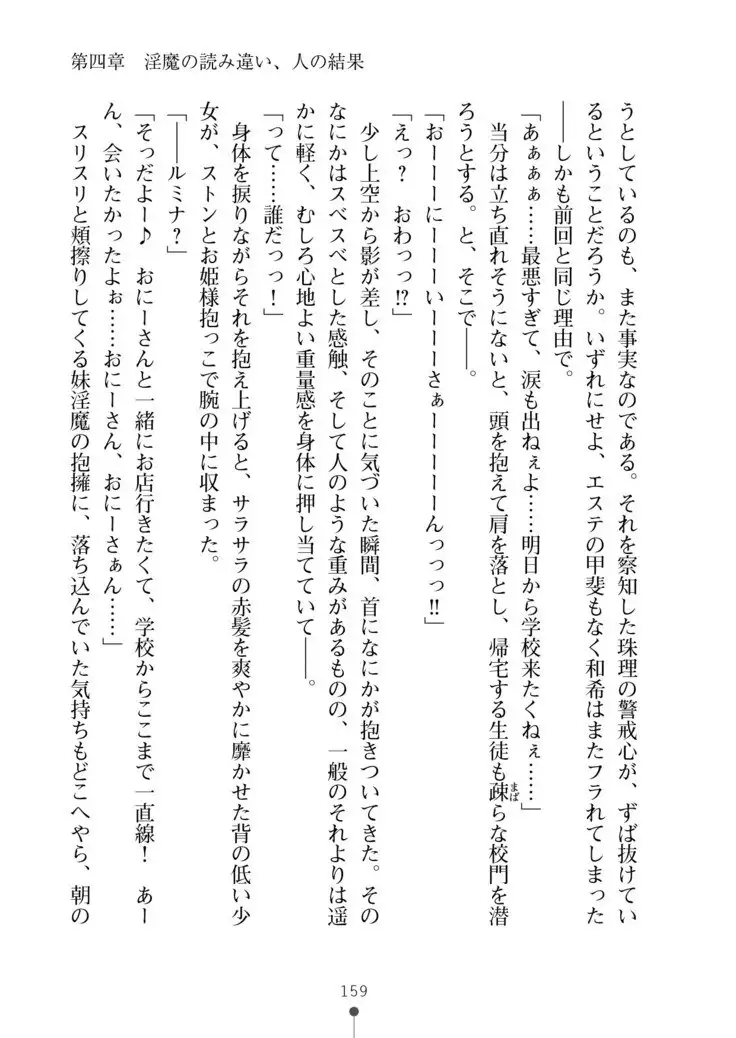 第四章　淫魔の読み違い、人の結果
うとしているのも、また事実なのである。それを察知した珠理の警戒心が、ずば抜けてい
るということだろうか。いずれにせよ、エステの甲斐もなく和希はまたフラれてしまった
――しかも前回と同じ理由で。
「あぁぁぁ……最悪すぎて、涙も出ねぇよ……明日から学校来たくねぇ……」
　当分は立ち直れそうにないと、頭を抱えて肩を落とし、帰宅する生徒も疎らな校門を潜
ろうとする。と、そこで――。
「おーーーにーーーいーーーさぁーーーーーんっっっ!!」
「えっ？　おわっっ!?」
　少し上空から影が差し、そのことに気づいた瞬間、首になにかが抱きついてきた。その
なにかはスベスベとした感触、そして人のような重みがあるものの、一般のそれよりは遥
かに軽く、むしろ心地よい重量感を身体に押し当てていて――。
「って……誰だっっ！」
　身体を捩りながらそれを抱え上げると、サラサラの赤髪を爽やかに靡かせた背の低い少
女が、ストンとお姫様抱っこで腕の中に収まった。
「――ルミナ？」
「そっだよー♪　おにーさんと一緒にお店行きたくて、学校からここまで一直線！　あー
ん、会いたかったよぉ……おにーさん、おにーさぁん……」
　スリスリと頬擦りしてくる妹淫魔の抱擁に、落ち込んでいた気持ちもどこへやら、朝の
159